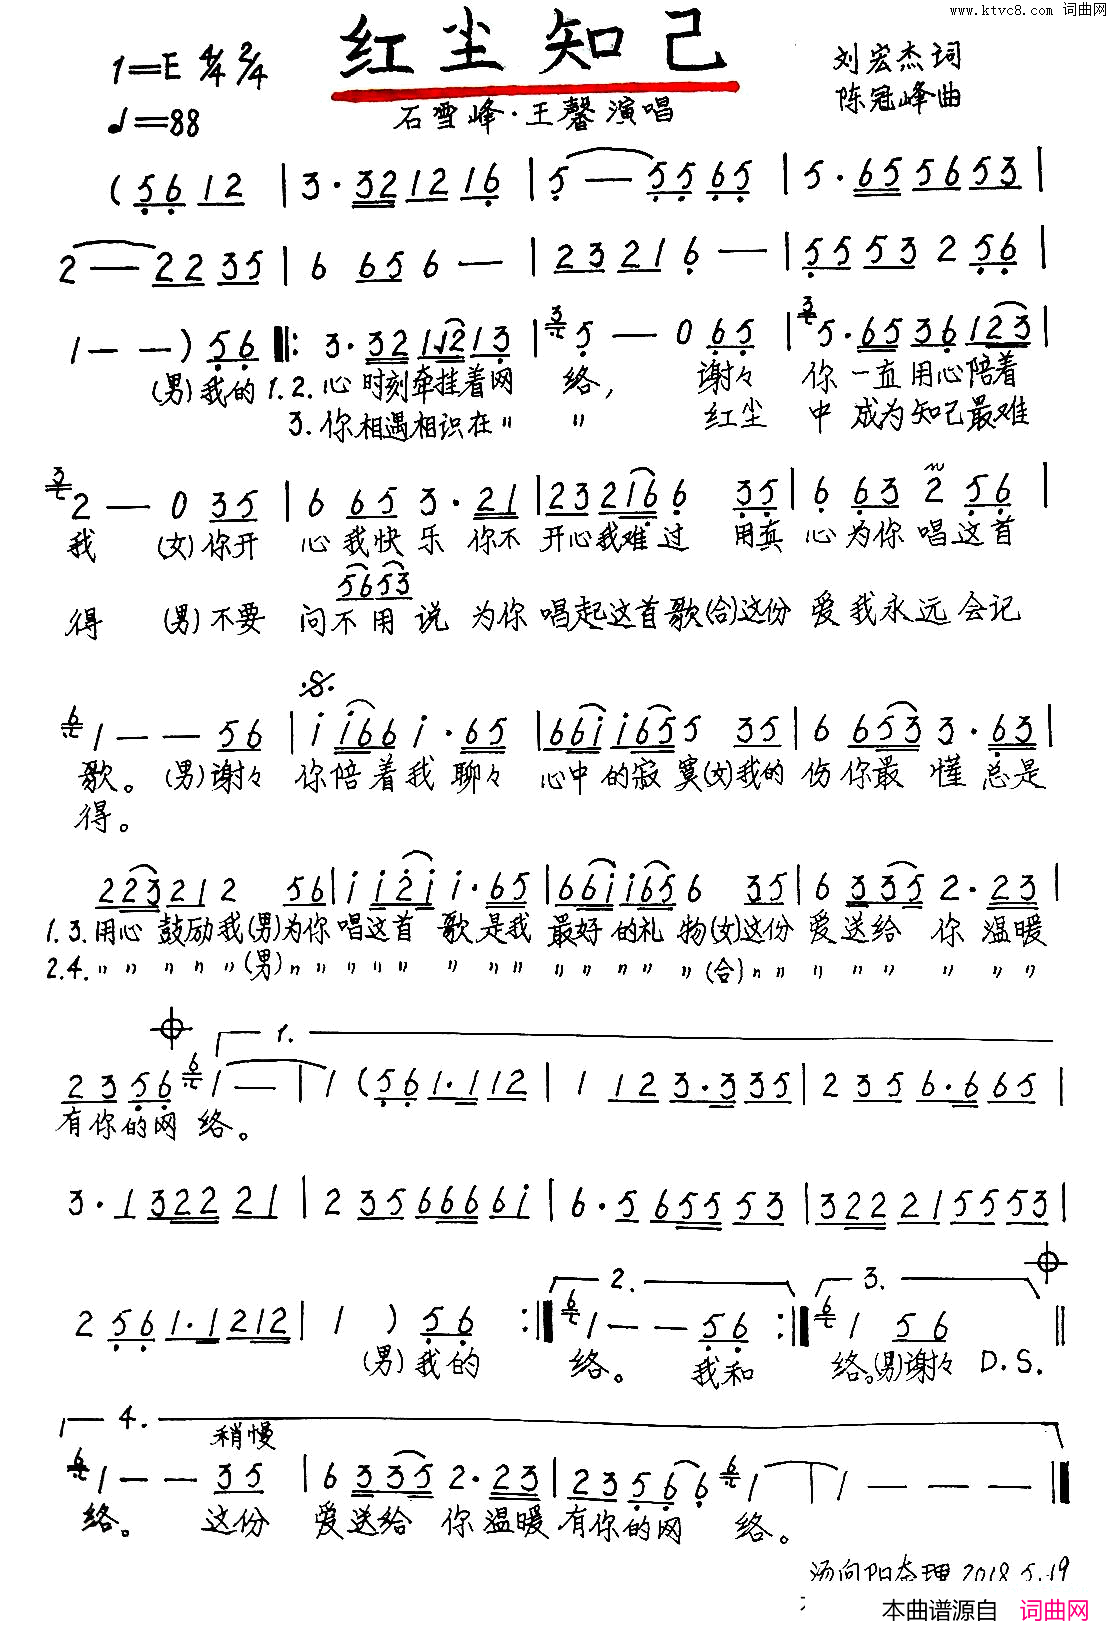 www.ktvc8.com 词曲网
红尘知己
1=E 4/4 2/4
♩=88
石雪峰·王馨演唱
刘宏杰词
陈冠峰曲
(5612 | 3·321216 | 5—5565 | 5·655653 |
2—2235 | 6 656— | 23216— | 5553 2 56 |
1——)56 ‖: 3·321213 | 5—0 65 | 5·6536123 |
(男)我的 1.2.心时刻牵挂着网 络, 谢々 你一直用心陪着
3.你相遇相识在〃 〃 红尘 中成为知己最难
2—0 35 | 6 65 3·21 | 232166 35 | 6 63 2 56 |
我 (女)你开 心我快乐你不 开心我难过 用真 心为你唱这首
5653
得 (男)不要 问不用说 为你 唱起这首歌(合)这份 爱我永远会记
1——56 | i i66 i·65 | 66i i655 35 | 6 653 3·63 |
歌。(男)谢々 你陪着我聊々 心中的寂寞(女)我的 伤你最懂总是
得。
223212 56 | i i2i i·65 | 66i i656 35 | 6 335 2·23 |
1.3.用心鼓励我(男)为你唱这首歌是我 最好的礼物(女)这份 爱送给你温暖
2.4.〃〃〃〃〃(男)〃〃〃〃〃〃〃〃〃 〃〃〃〃〃(合)〃〃〃〃〃〃〃〃
1.
2356 1— | 1(561·112 | 1 123·335 | 2 356·665 |
有你的网络。
3·1 322 21 | 2 356666i | 6·5 655553 | 322215553 |
2. 3.
2 561·1212 | 1 ) 56 :‖ 1——56 :‖ 1 56 ‖
(男)我的 络。 我和 络。(男)谢々 D.S.
4.
稍慢
1——35 | 6 335 2·23 | 23566 1 | 1——— ‖
络。 这份 爱送给你温暖 有你的网 络。
2018.5.19
本曲谱源自 词曲网